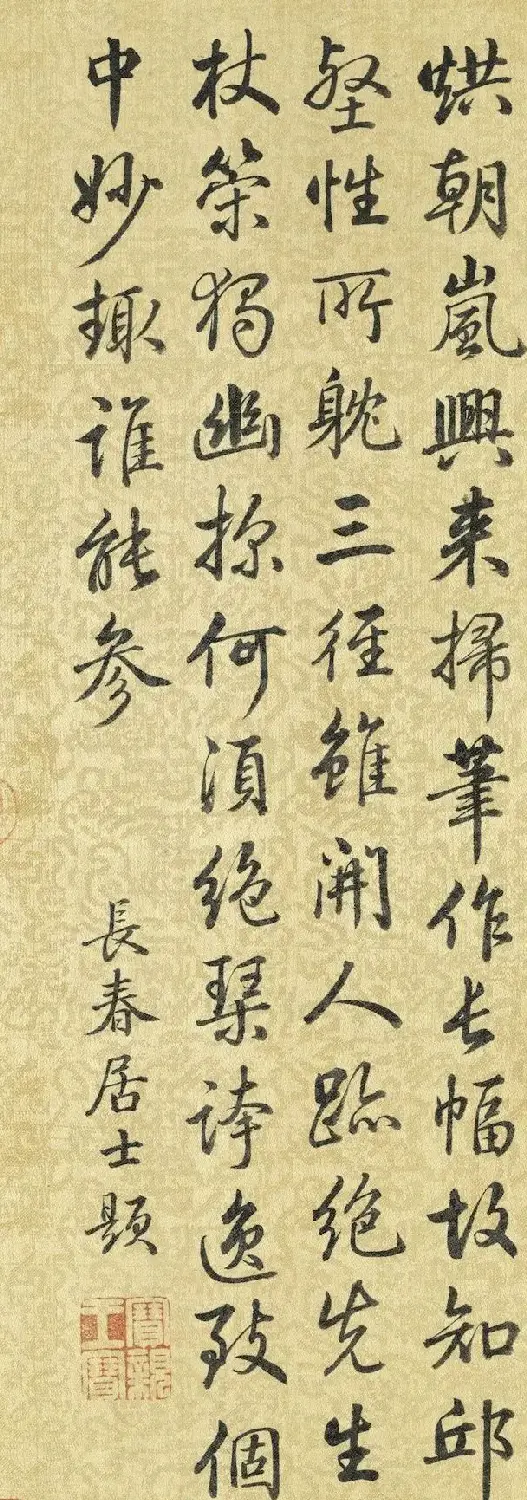 烘朝嵐興来掃筆作長幅故知邱
壑性所躭三徑雖開人跡絶先生
杖策獨幽探何須絶琹誇逸致個
中妙趣誰能參
長春居士題
寶親王寶